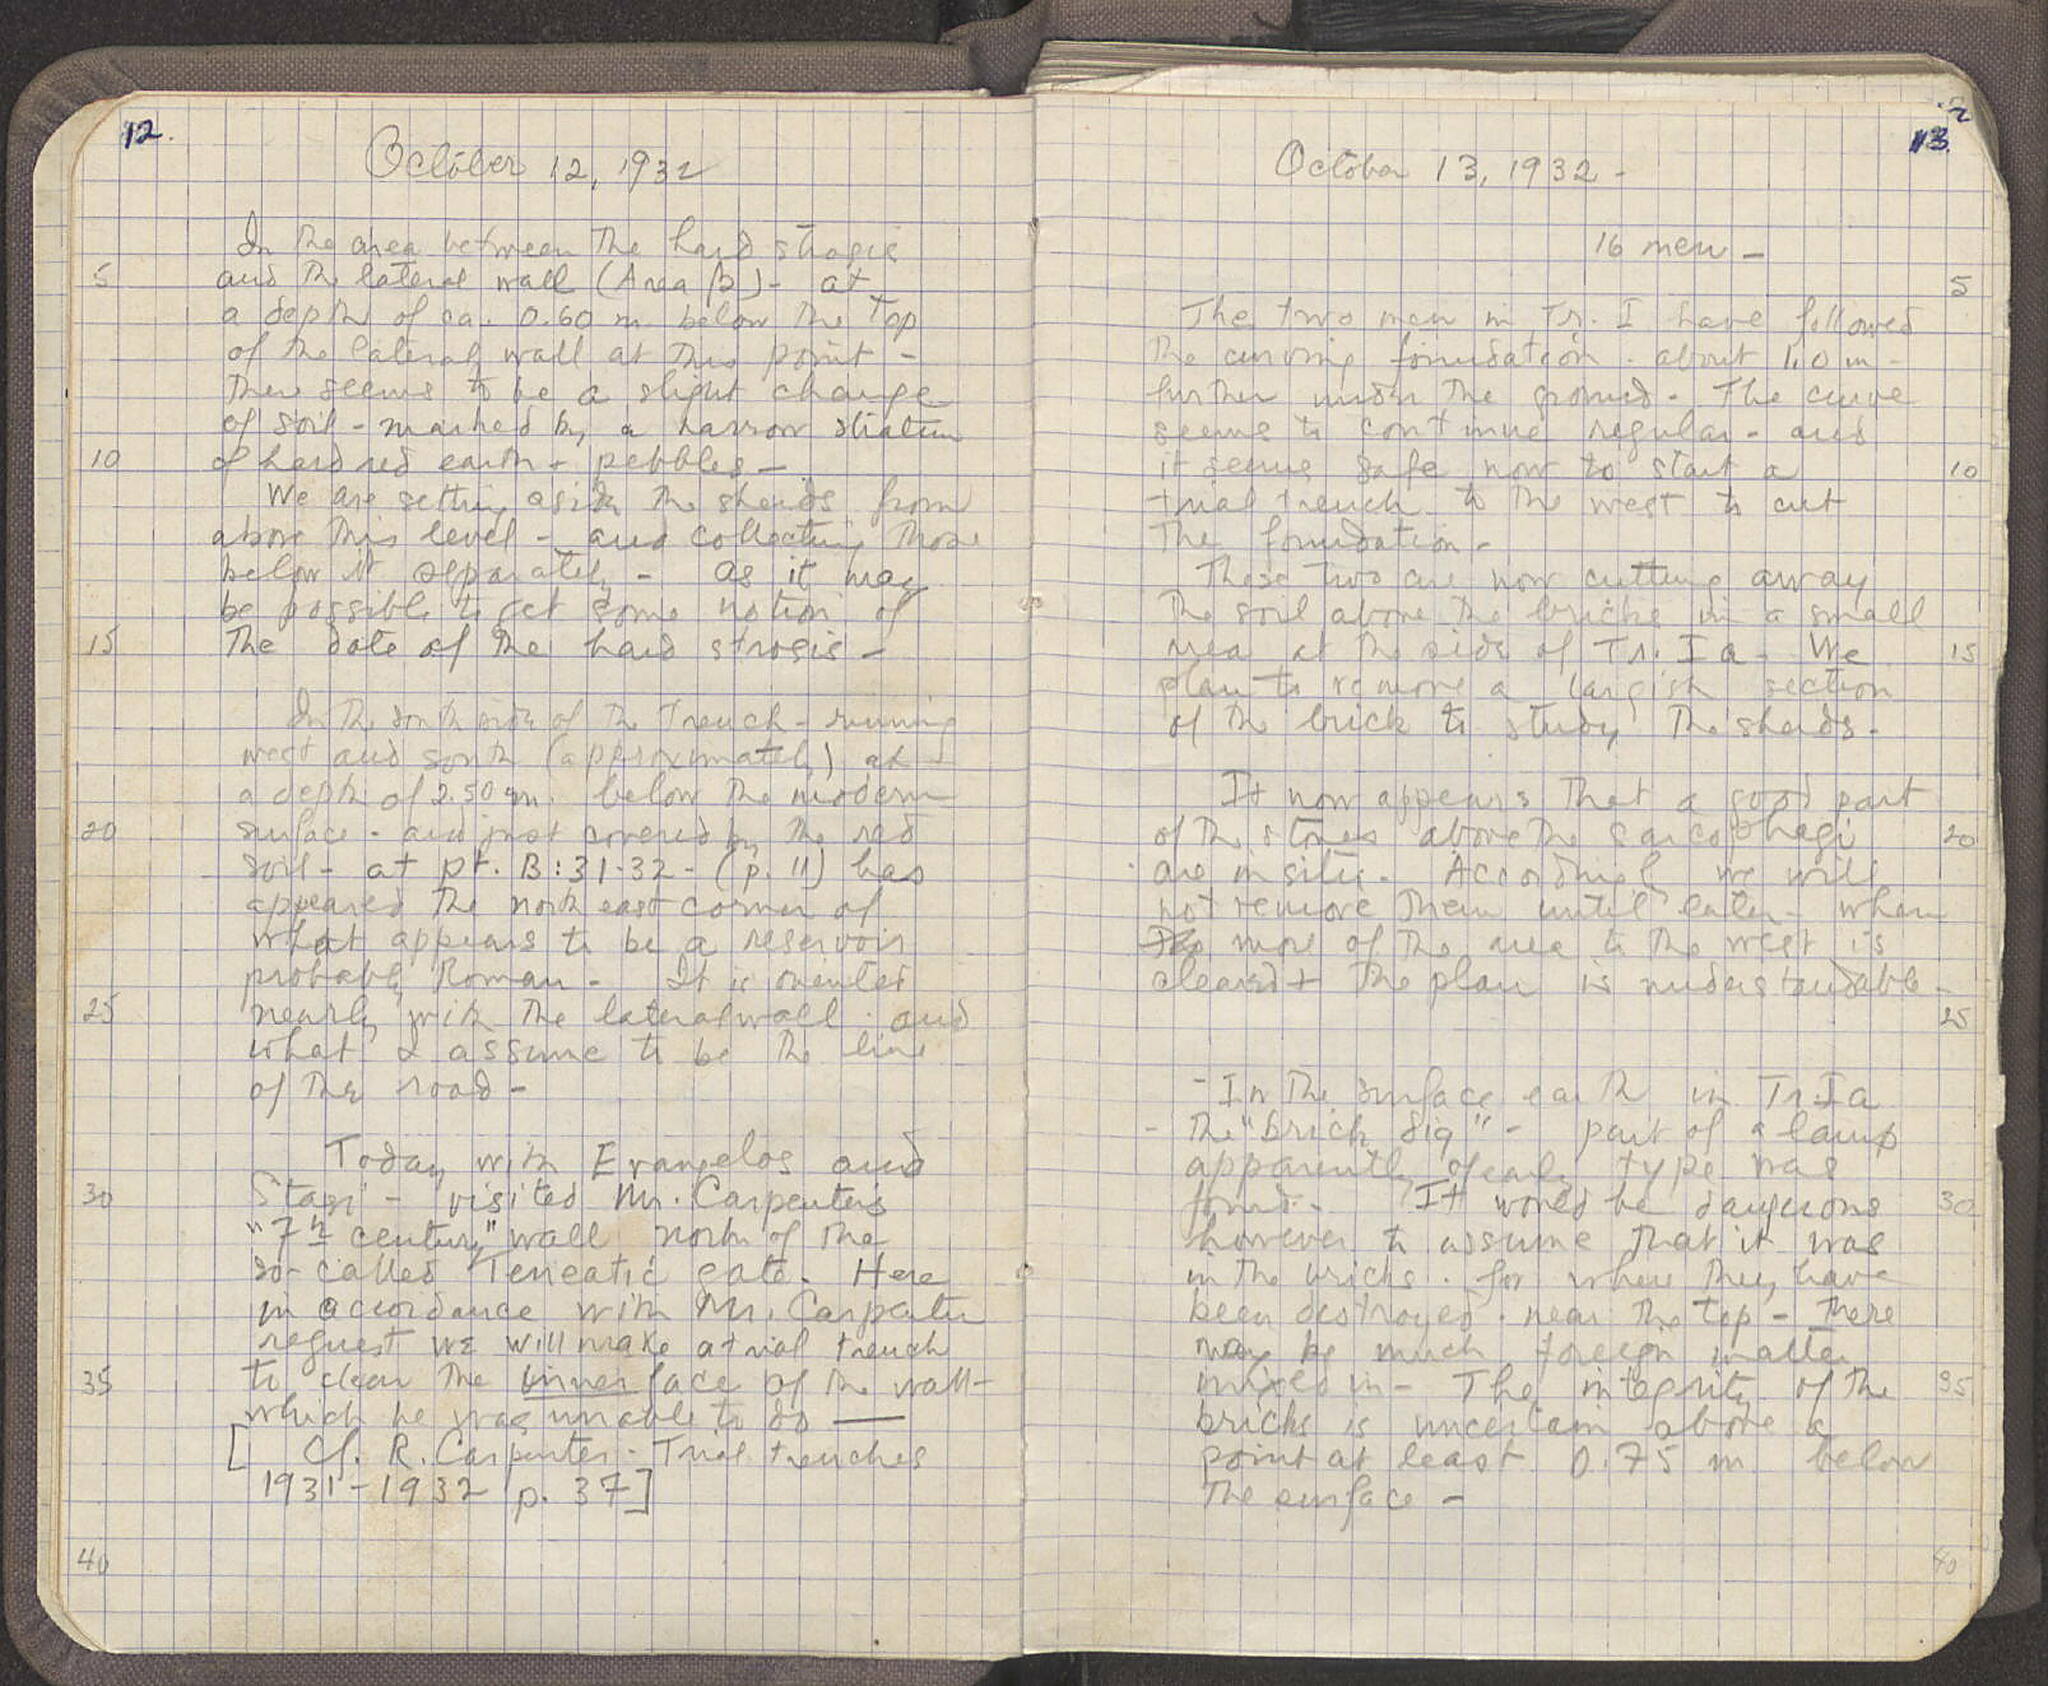 12.
October 12, 1932
In the area between the hard strosis
5 and the lateral wall (Area β) - at
a depth of ca. 0.60 m. below the top
of the lateral wall at this point -
there seems to be a slight change
of soil - marked by a narrow stratum
10 of hard red earth + pebbles -
We are setting aside the sherds from
above this level - and collecting those
below it separately - as it may
be possible to get some notion of
15 the date of the hard strosis -
In the south side of the trench - running
west and south (approximately) at
a depth of 2.50 m. below the modern
20 surface - and just covered by the red
soil - at pt. B:31-32 - (p. 11) has
appeared the north east corner of
what appears to be a reservoir
probably Roman - It is oriented
25 nearly with the lateral wall - and
what I assume to be the line
of the road -
Today with Evangelos and
30 Stasi - visited Mr. Carpenter's
"7th century" wall north of the
so-called Teneatic gate. Here
in accordance with Mr. Carpenter
request we will make a trial trench
35 to clear the inner face of the wall -
which he was unable to do —
[ Cf. R. Carpenter - Trial trenches
1931-1932 p. 37]
40
2
13.
October 13, 1932 -
16 men -
5
The two men in Tr. I have followed
the curving foundation - about 1.0 m -
further under the ground - The curve
seems to continue regular - and
it seems safe now to start a 10
trial trench to the west to cut
the foundation -
These two are now cutting away
the soil above the bricks in a small
area at the side of Tr. I a - We 15
plan to remove a largish section
of the brick to study the sherds -
It now appears that a good part
of the stones above the sarcophagi 20
are in situ - Accordingly we will
not remove them until later - when
more of the area to the west is
cleared + the plan is understandable -
25
- In the surface earth in Tr. I a
- the "brick dig" - part of a lamp
apparently of early type was
found - It would be dangerous 30
however to assume that it was
in the bricks - for where they have
been destroyed - near the top - there
may be much foreign matter
mixed in - The integrity of the 35
bricks is uncertain above a
point at least 0.75 m below
the surface -
40